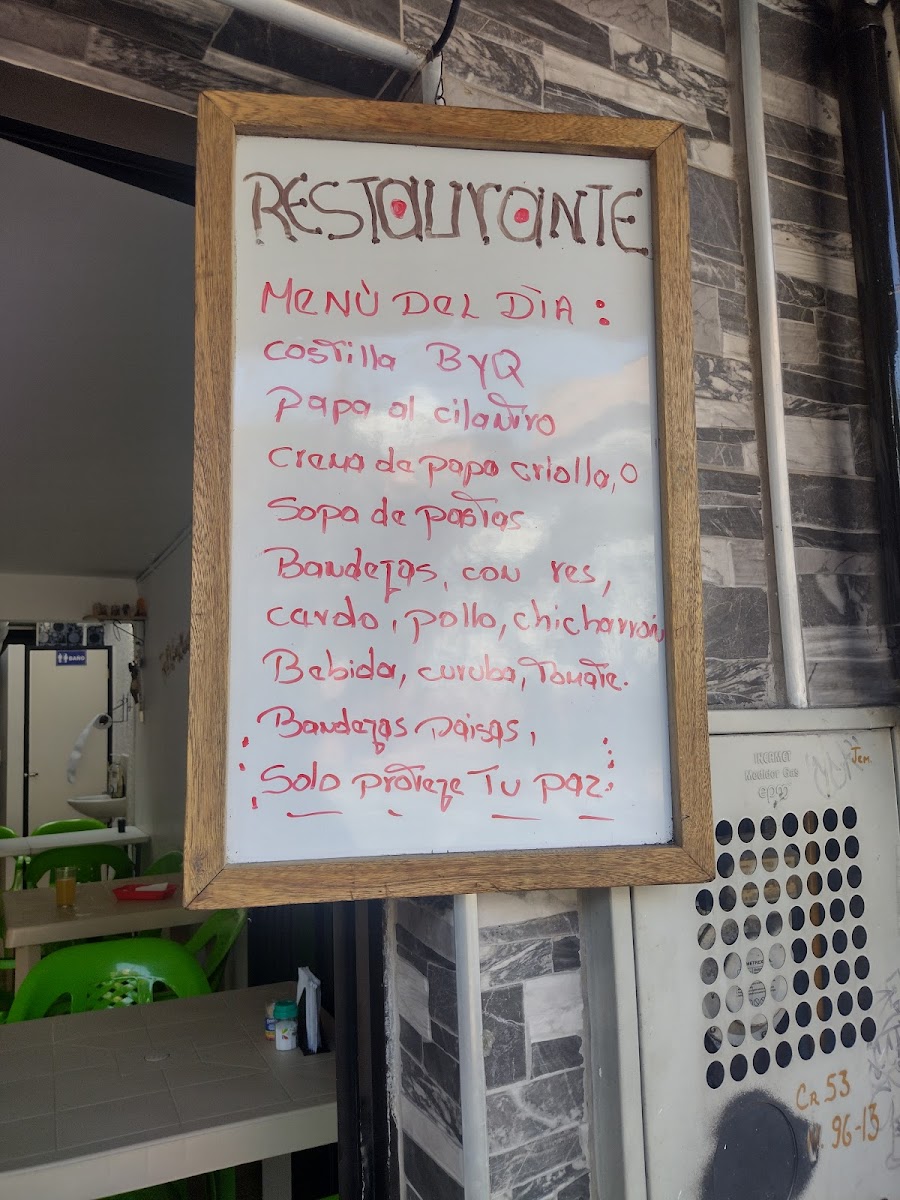 RESTAURANTE
MENÙ DEL DÌA :
costilla ByQ
Papa al cilantro
Crema de papa criolla, O
Sopa de pastas
Bandejas, con res,
cerdo, pollo, chicharron
Bebida, curuba, Tomate.
Bandejas paisas,
Solo proteje Tu paz
BAÑO
INCAMET
Medidor Gas
epm
Jem.
METREX
Cr 53
N. 96-13